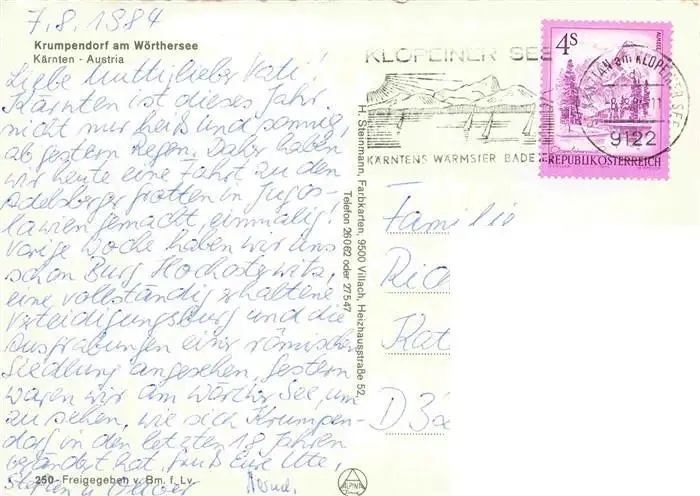 7.8.1984
Krumpendorf am Wörthersee
Kärnten - Austria
Liebe Mutti, lieber Vati!
Kärnten ist dieses Jahr
nicht nur heiß und sonnig,
ab gestern Regen. Daher haben
wir heute eine Fahrt zu den
Adelsberger Grotten in Jugos-
lawien gemacht, einmalig!
Vorige Woche haben wir uns
schon Burg Hochosterwitz,
eine vollständig erhaltene
Verteidigungsburg und die
Ausgrabungen einer römischen
Siedlung angesehen, gestern
waren wir am Wörther See, um
zu sehen, wie sich Krumpen-
dorf in den letzten 18 Jahren
geändert hat. Gruß Eure Ute,
Stefan u.
Bernd.
250 - Freigegeben v. Bm. f. Lv.
H. Steinmann, Farbkarten, 9500 Villach, Heizhausstraße 52,
Telefon 26062 oder 27547
ALPINA
KLOPEINER SEE
KÄRNTENS WÄRMSTER BADE
4S
REPUBLIK ÖSTERREICH
KLOPEINER SEE
9122
Familie
D